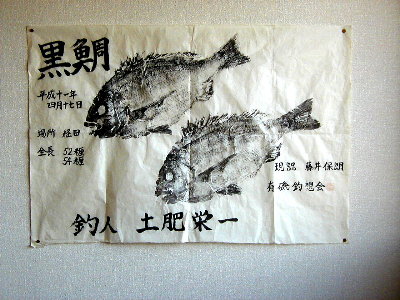 黒鯛
平成十一年
四月十七日
場所 経田
全長 52糎
54糎
現認 藤井保朗
有磯釣想会
釣人 土肥栄一